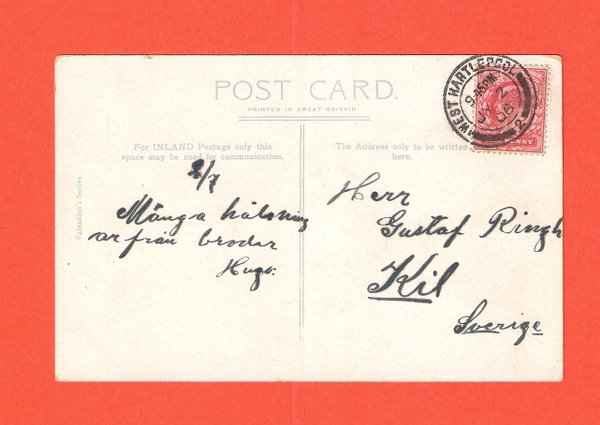 POST CARD.
PRINTED IN GREAT BRITAIN
WEST HARTLEPOOL
2
06
2
PENNY
For INLAND Postage only this
space may be used for communication.
The Address only to be written
here.
Valentine's Series
2/7
Många hälsning
ar från broder
Hugo.
Herr
Gustaf Ringh
Kil
Sverige